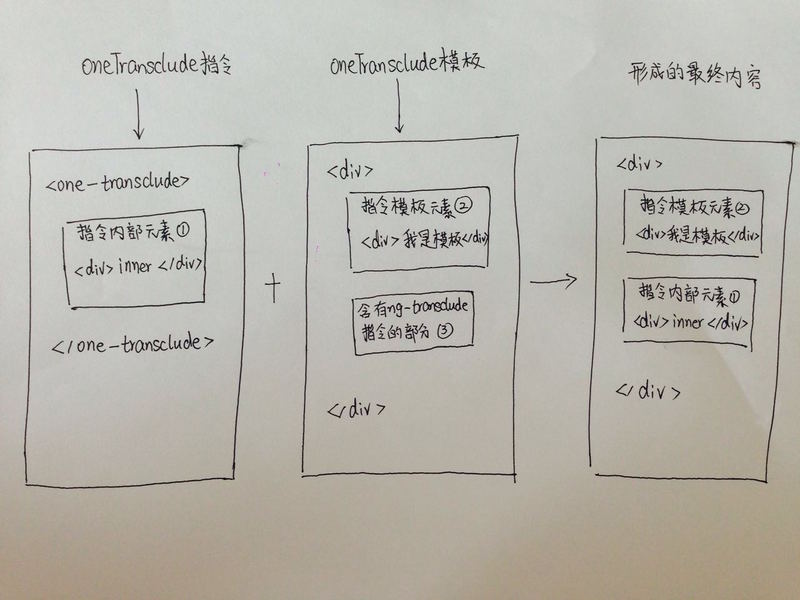 oneTransclude指令
<one-transclude>
指令内部元素①
<div> inner </div>
</one-transclude>
+
oneTransclude模板
<div>
指令模板元素②
<div> 我是模板</div>
含有ng-transclude
指令的部分 ③
</div>
形成的最终内容
<div>
指令模板元素②
<div>我是模板</div>
指令内部元素①
<div> inner </div>
</div>